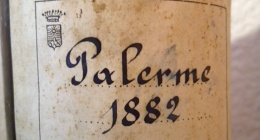 Palerme
1882